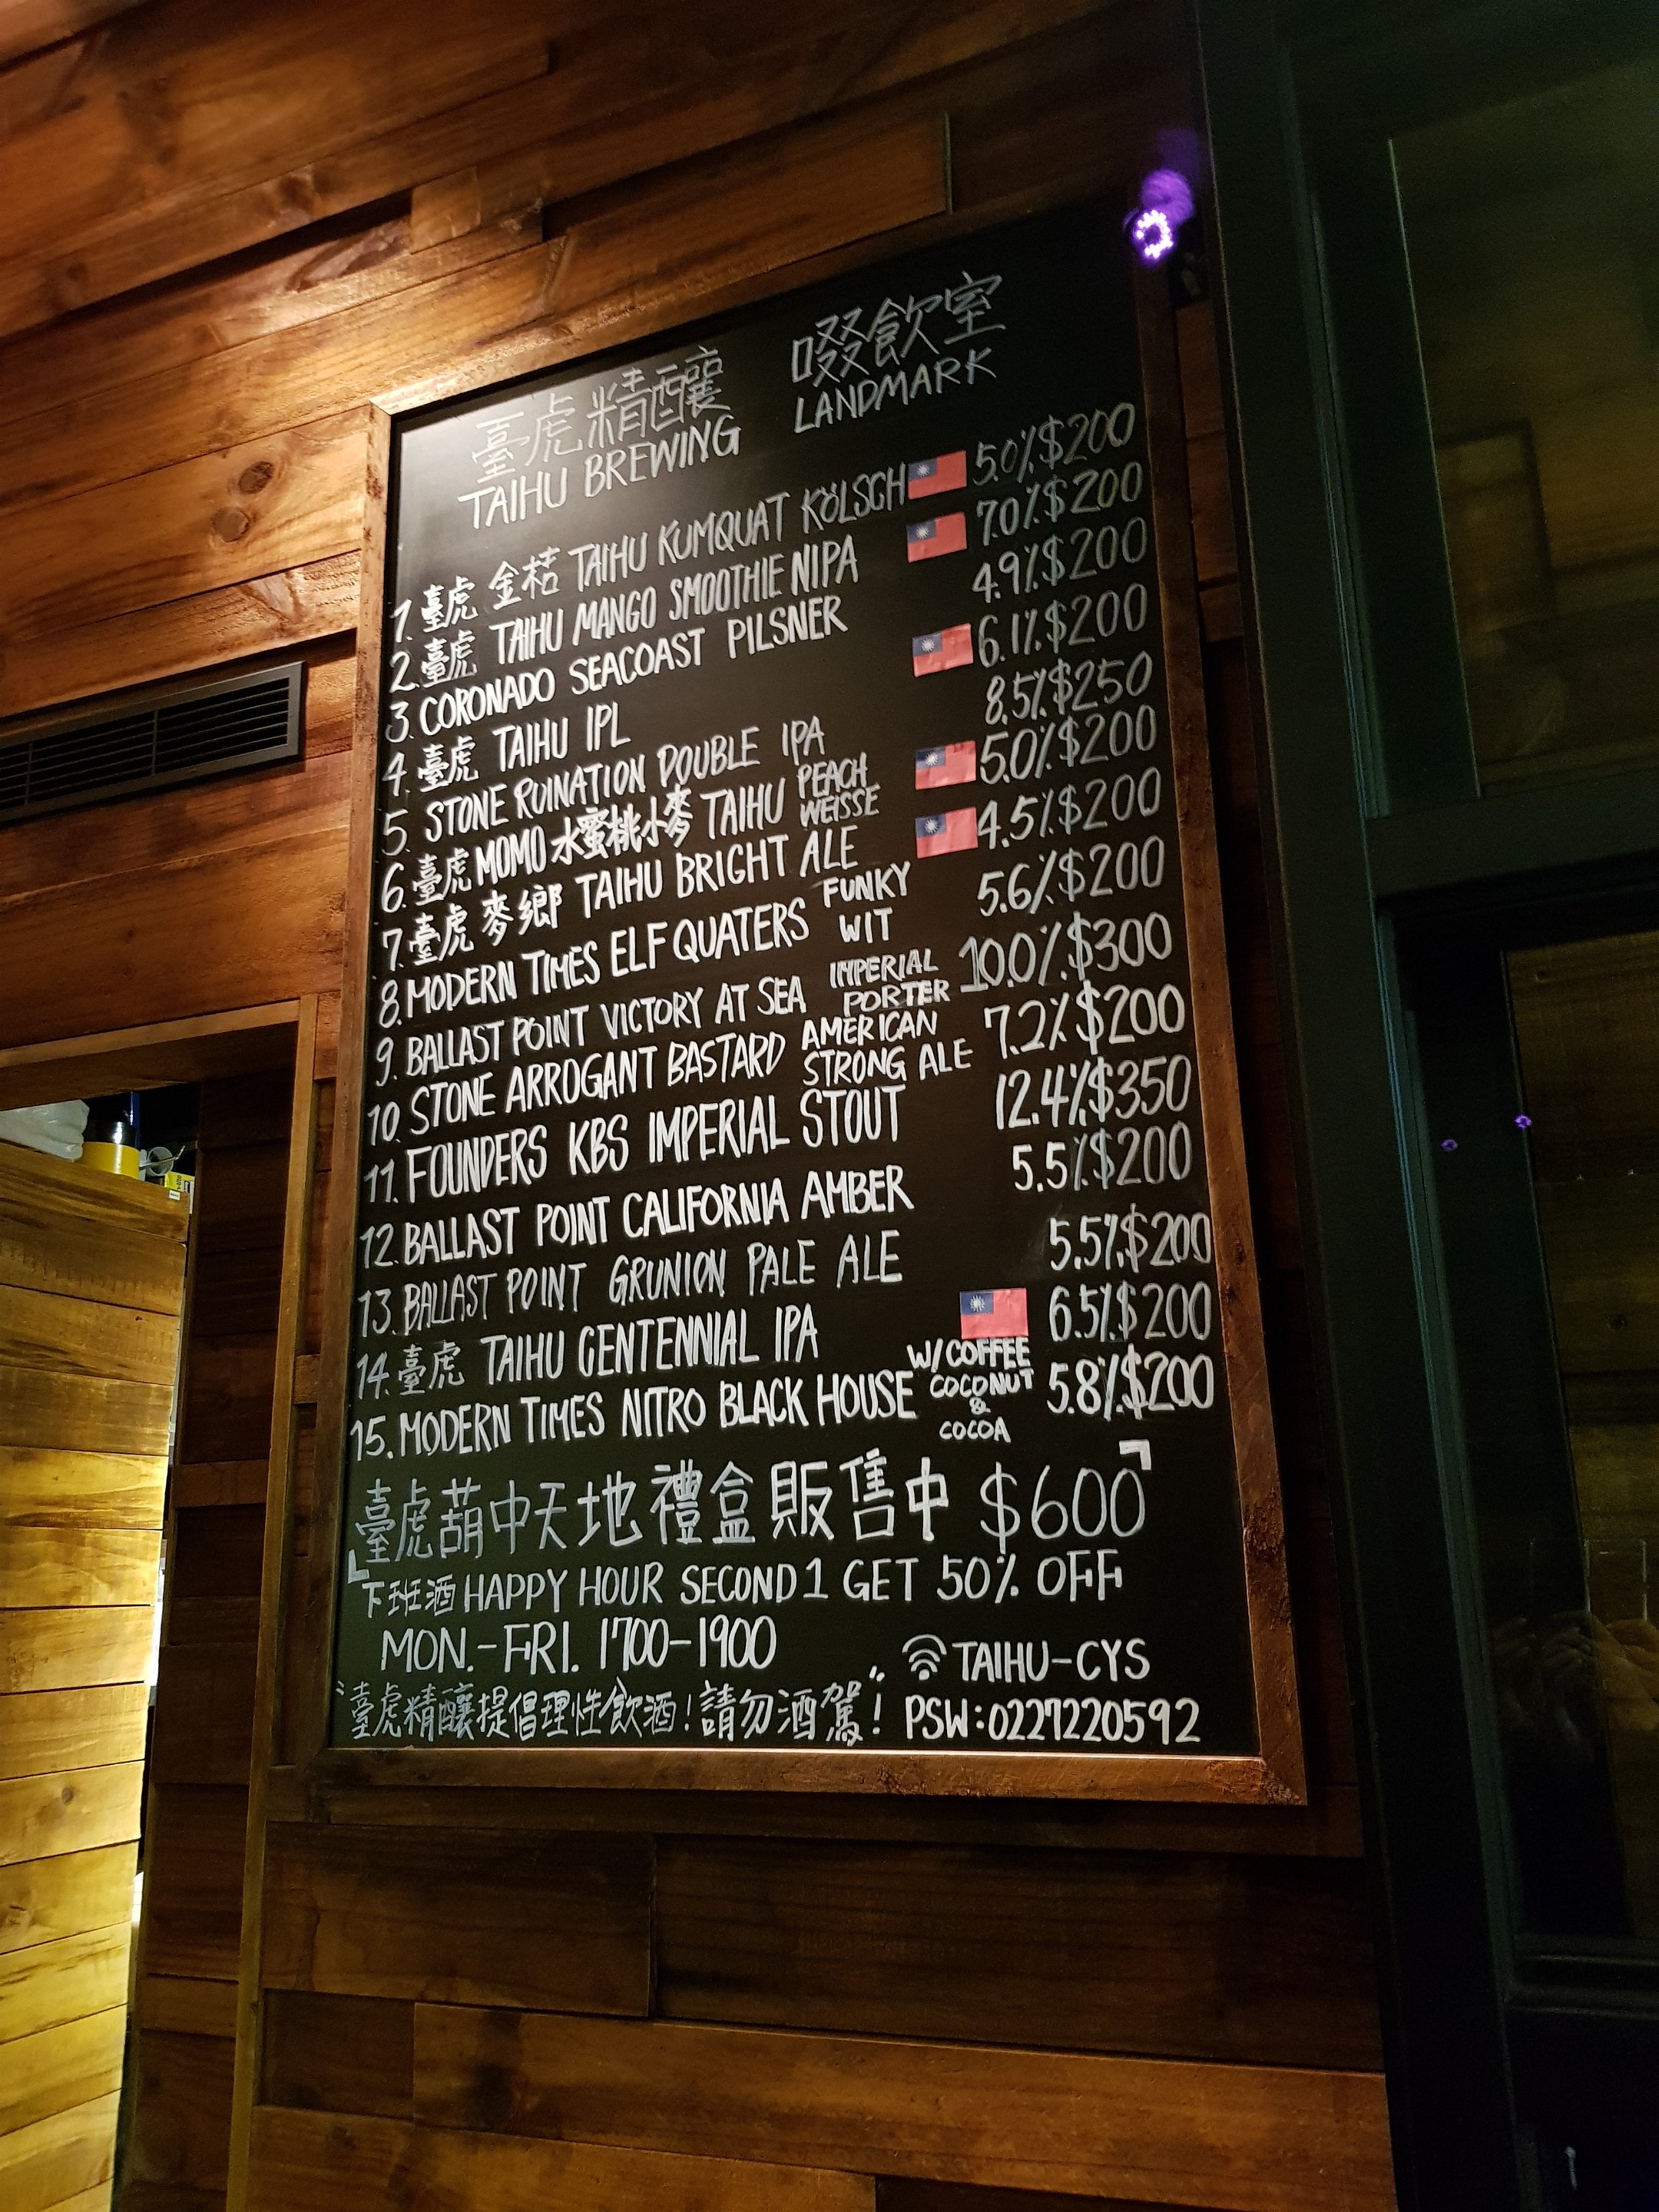 臺虎精釀 啜飲室
TAIHU BREWING LANDMARK
1. 臺虎 金桔 TAIHU KUMQUAT KÖLSCH 5.0% $200
2. 臺虎 TAIHU MANGO SMOOTHIE NIPA 7.0% $200
3. CORONADO SEACOAST PILSNER 4.9% $200
4. 臺虎 TAIHU IPL 6.1% $200
5. STONE RUINATION DOUBLE IPA 8.5% $250
6. 臺虎 MOMO 水蜜桃小麥 TAIHU PEACH WEISSE 5.0% $200
7. 臺虎 麥鄉 TAIHU BRIGHT ALE 4.5% $200
8. MODERN TIMES ELF QUATERS FUNKY WIT 5.6% $200
9. BALLAST POINT VICTORY AT SEA IMPERIAL PORTER 10.0% $300
10. STONE ARROGANT BASTARD AMERICAN STRONG ALE 7.2% $200
11. FOUNDERS KBS IMPERIAL STOUT 12.4% $350
12. BALLAST POINT CALIFORNIA AMBER 5.5% $200
13. BALLAST POINT GRUNION PALE ALE 5.5% $200
14. 臺虎 TAIHU CENTENNIAL IPA 6.5% $200
15. MODERN TIMES NITRO BLACK HOUSE W/ COFFEE COCONUT & COCOA 5.8% $200
「臺虎葫中天地禮盒販售中 $600」
下班酒 HAPPY HOUR SECOND 1 GET 50% OFF
MON.-FRI. 1700-1900
TAIHU-CYS
"臺虎精釀提倡理性飲酒!請勿酒駕!"
PSW:0227220592